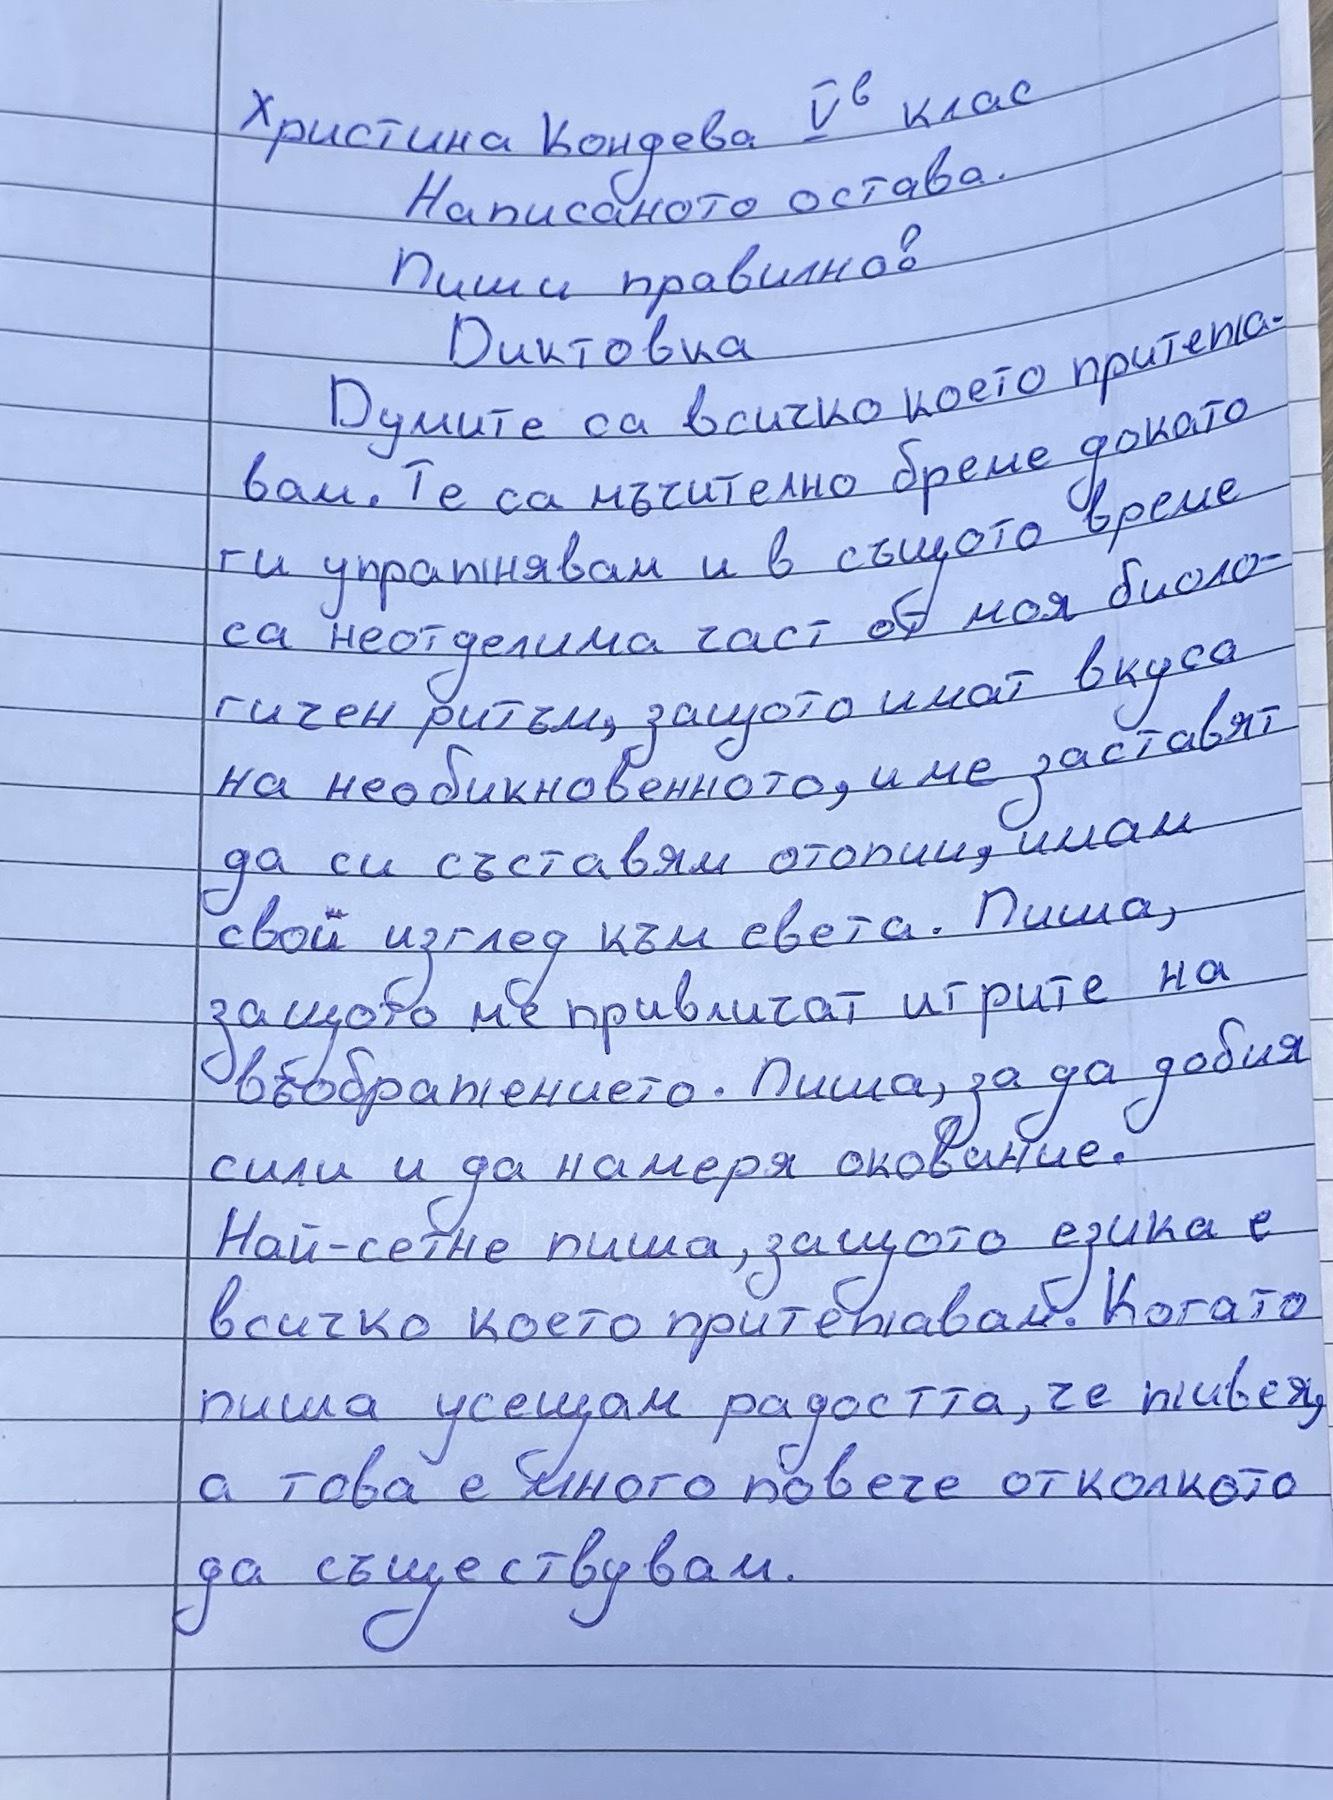 Христина Кондева V в клас
Написаното остава.
Пиши правилно!
Диктовка
Думите са всичко което притежа-
вам. Те са мъчително бреме докато
ги упражнявам и в същото време
са неотделима част от моя биоло-
гичен ритъм, защото имат вкуса
на необикновенното, и ме заставят
да си съставям отопии, имам
свой изглед към света. Пиша,
защото ме привличат игрите на
въображението. Пиша, за да добия
сили и да намеря окование.
Най-сетне пиша, защото езика е
всичко което притежавам. Когато
пиша усещам радостта, че живея,
а това е много повече отколкото
да съществувам.